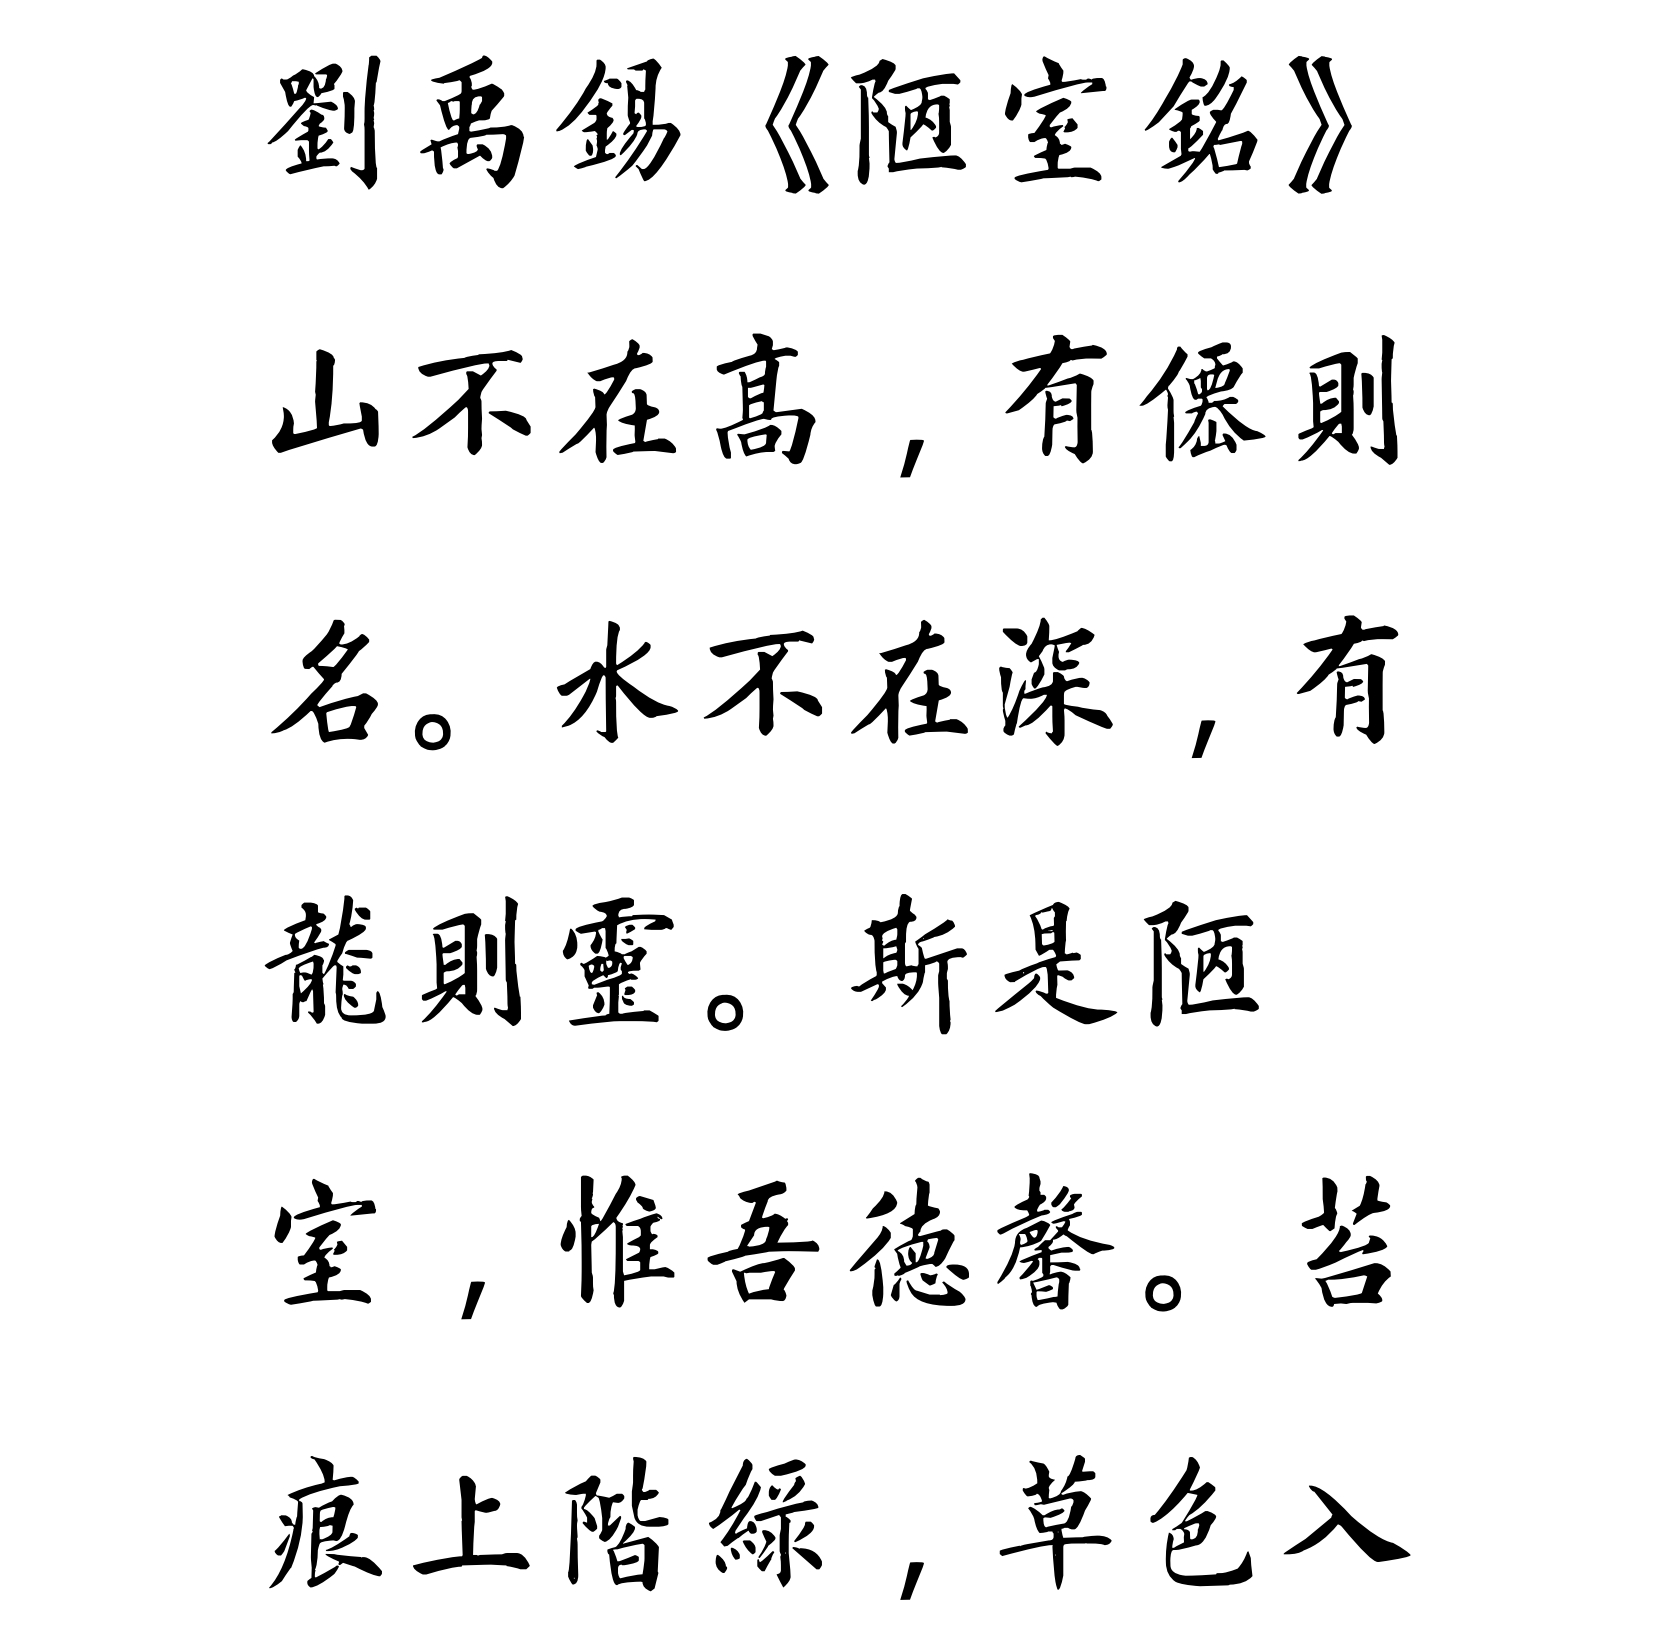 劉禹錫《陋室銘》
山不在髙，有僊則
名。水不在深，有
龍則靈。斯是陋
室，惟吾德馨。苔
痕上階綠，草色入